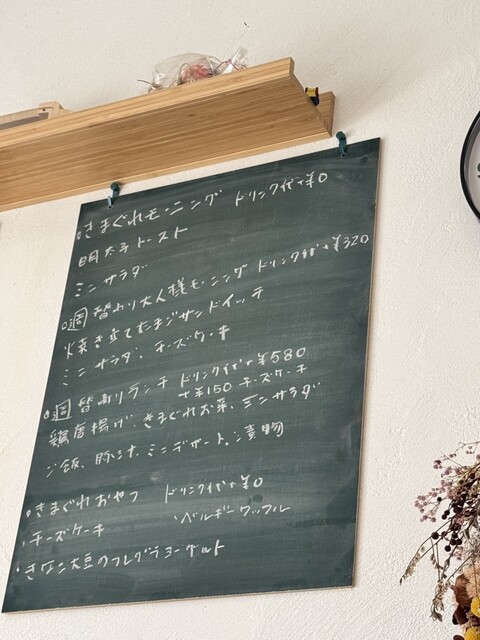 ○きまぐれモーニング ドリンク代+¥0
明太子トースト
ミニサラダ
○週替わり大人様モーニング ドリンク代+¥320
焼き立てたまごサンドイッチ
ミニサラダ、チーズケーキ
○週替わりランチ ドリンク代+¥580
+¥150 チーズケーキ
鶏唐揚げ、きまぐれお菜、ミニサラダ
ご飯、豚汁、ミニデザート、漬物
○きまぐれおやつ ドリンク代+¥0
・チーズケーキ ・ベルギーワッフル
・きなこ大豆のフレグラヨーグルト